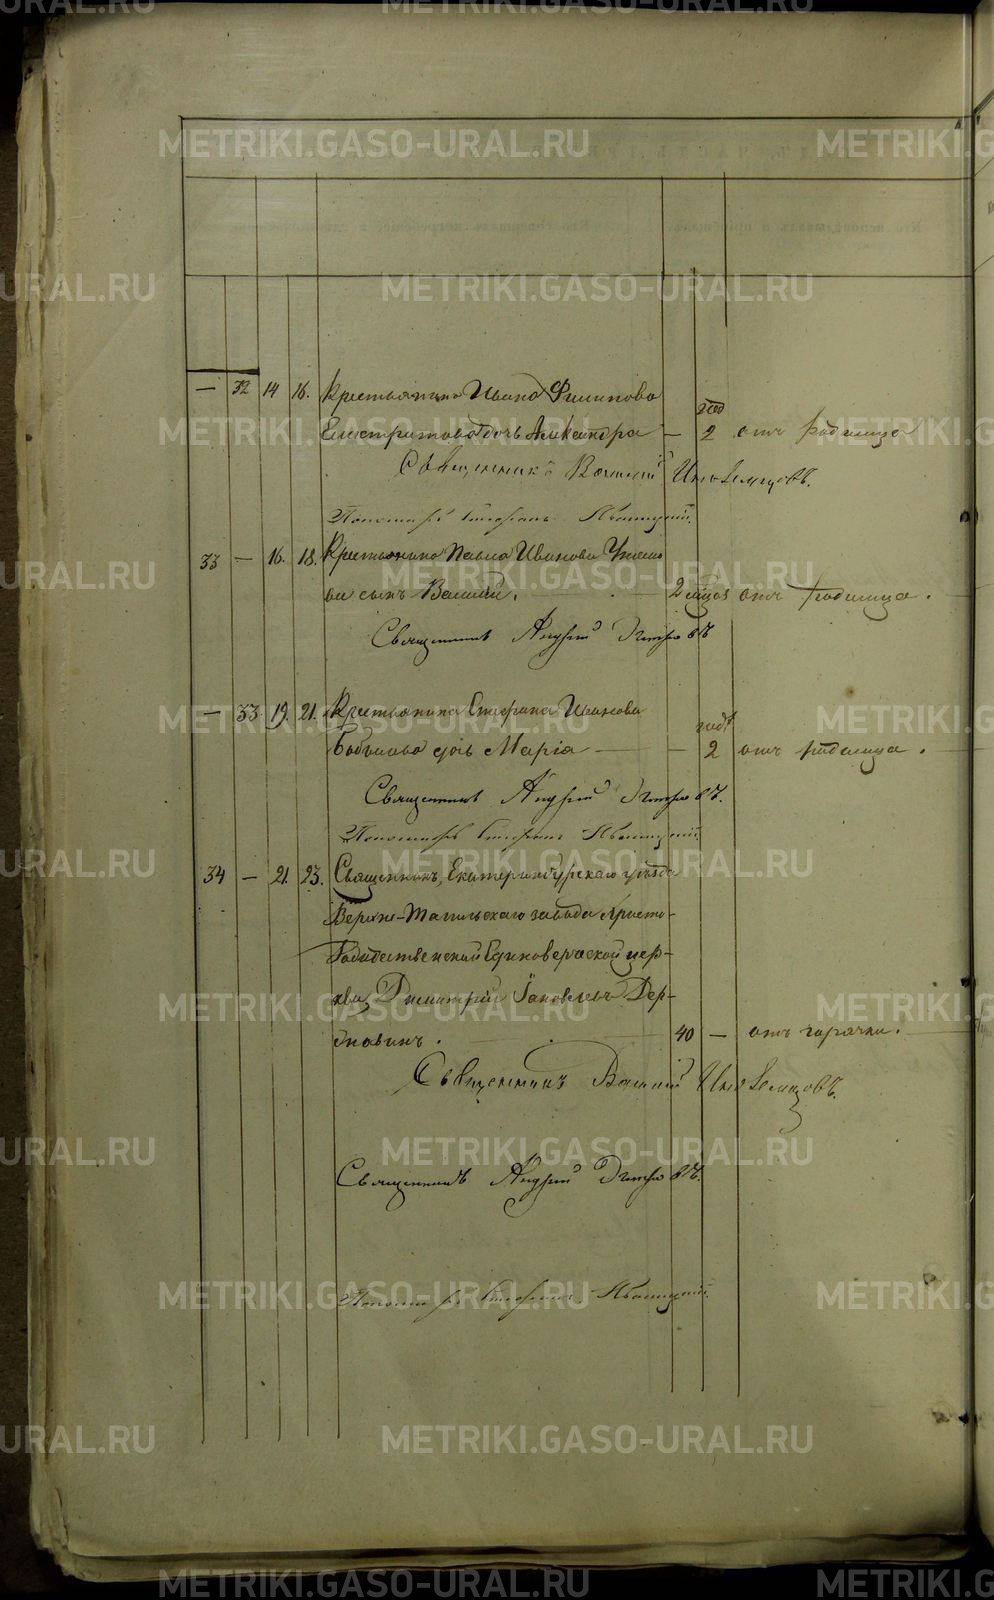 METRIKI.GASO-URAL.RU
— 32 14 16. Крестьянина Ивана Филипова
Елистратова дочь Александра — 2 год отъ родимца
Священникъ Василий Иноземцовъ.
Пономарь Стефанъ
33 — 16. 18. Крестьянина Павла Иванова
ва сынъ Василий. 2 мѣсяц отъ родимца.
Священникъ Андрей
— 33 19. 21. Крестьянина Стефана Иванова
дочь Марія — 2 года отъ родимца.
Священникъ Андрей
Пономарь Стефанъ
34 — 21. 23. Священникъ, Екатеринбурскаго уѣзда
Верхне-Тагильскаго завода Христо-
рождественской Единоверческой цер-
кви, Димитрій Іаковлевъ Дер-
бновинъ. 40 — отъ горячки.
Священникъ Василий Иноземцовъ.
Священникъ Андрей
Пономарь Стефанъ